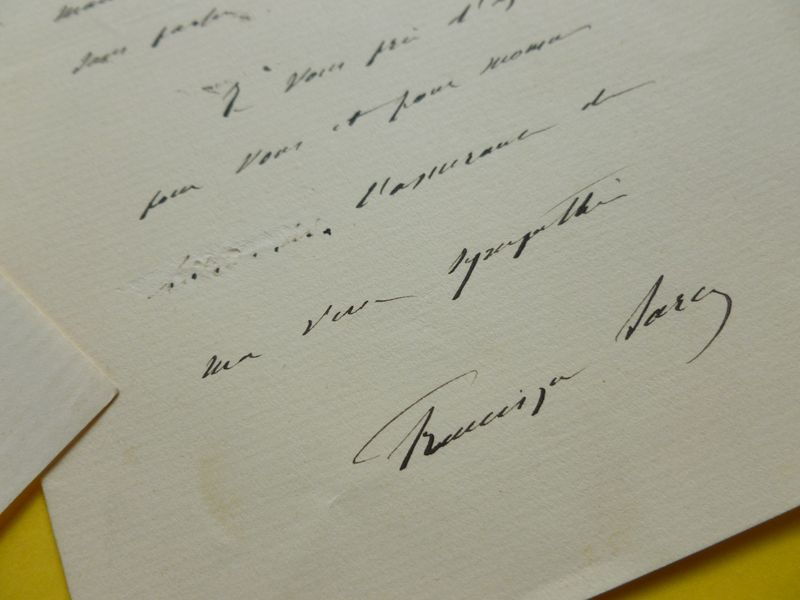 sans parler
Je vous prie d'a
pour vous et pour mome
l'assurance de
ma vive sympathie
Francisque Sarcey